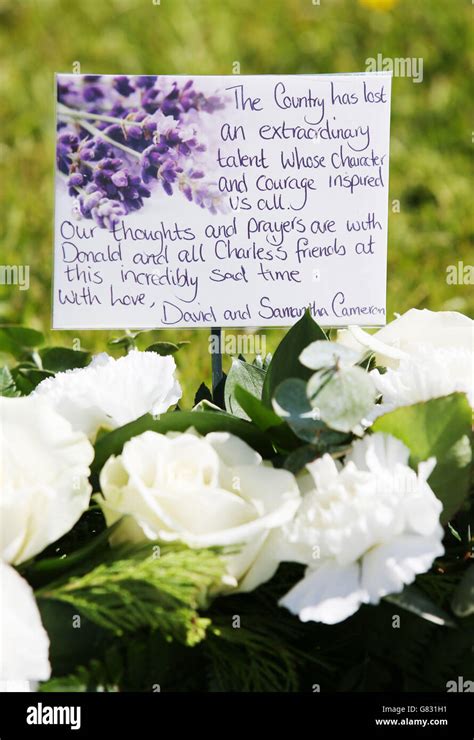 The Country has lost
an extraordinary
talent whose character
and courage inspired
us all.
Our thoughts and prayers are with
Donald and all Charles's friends at
this incredibly sad time
With love,
David and Samantha Cameron
alamy
Image ID: G831H1
www.alamy.com